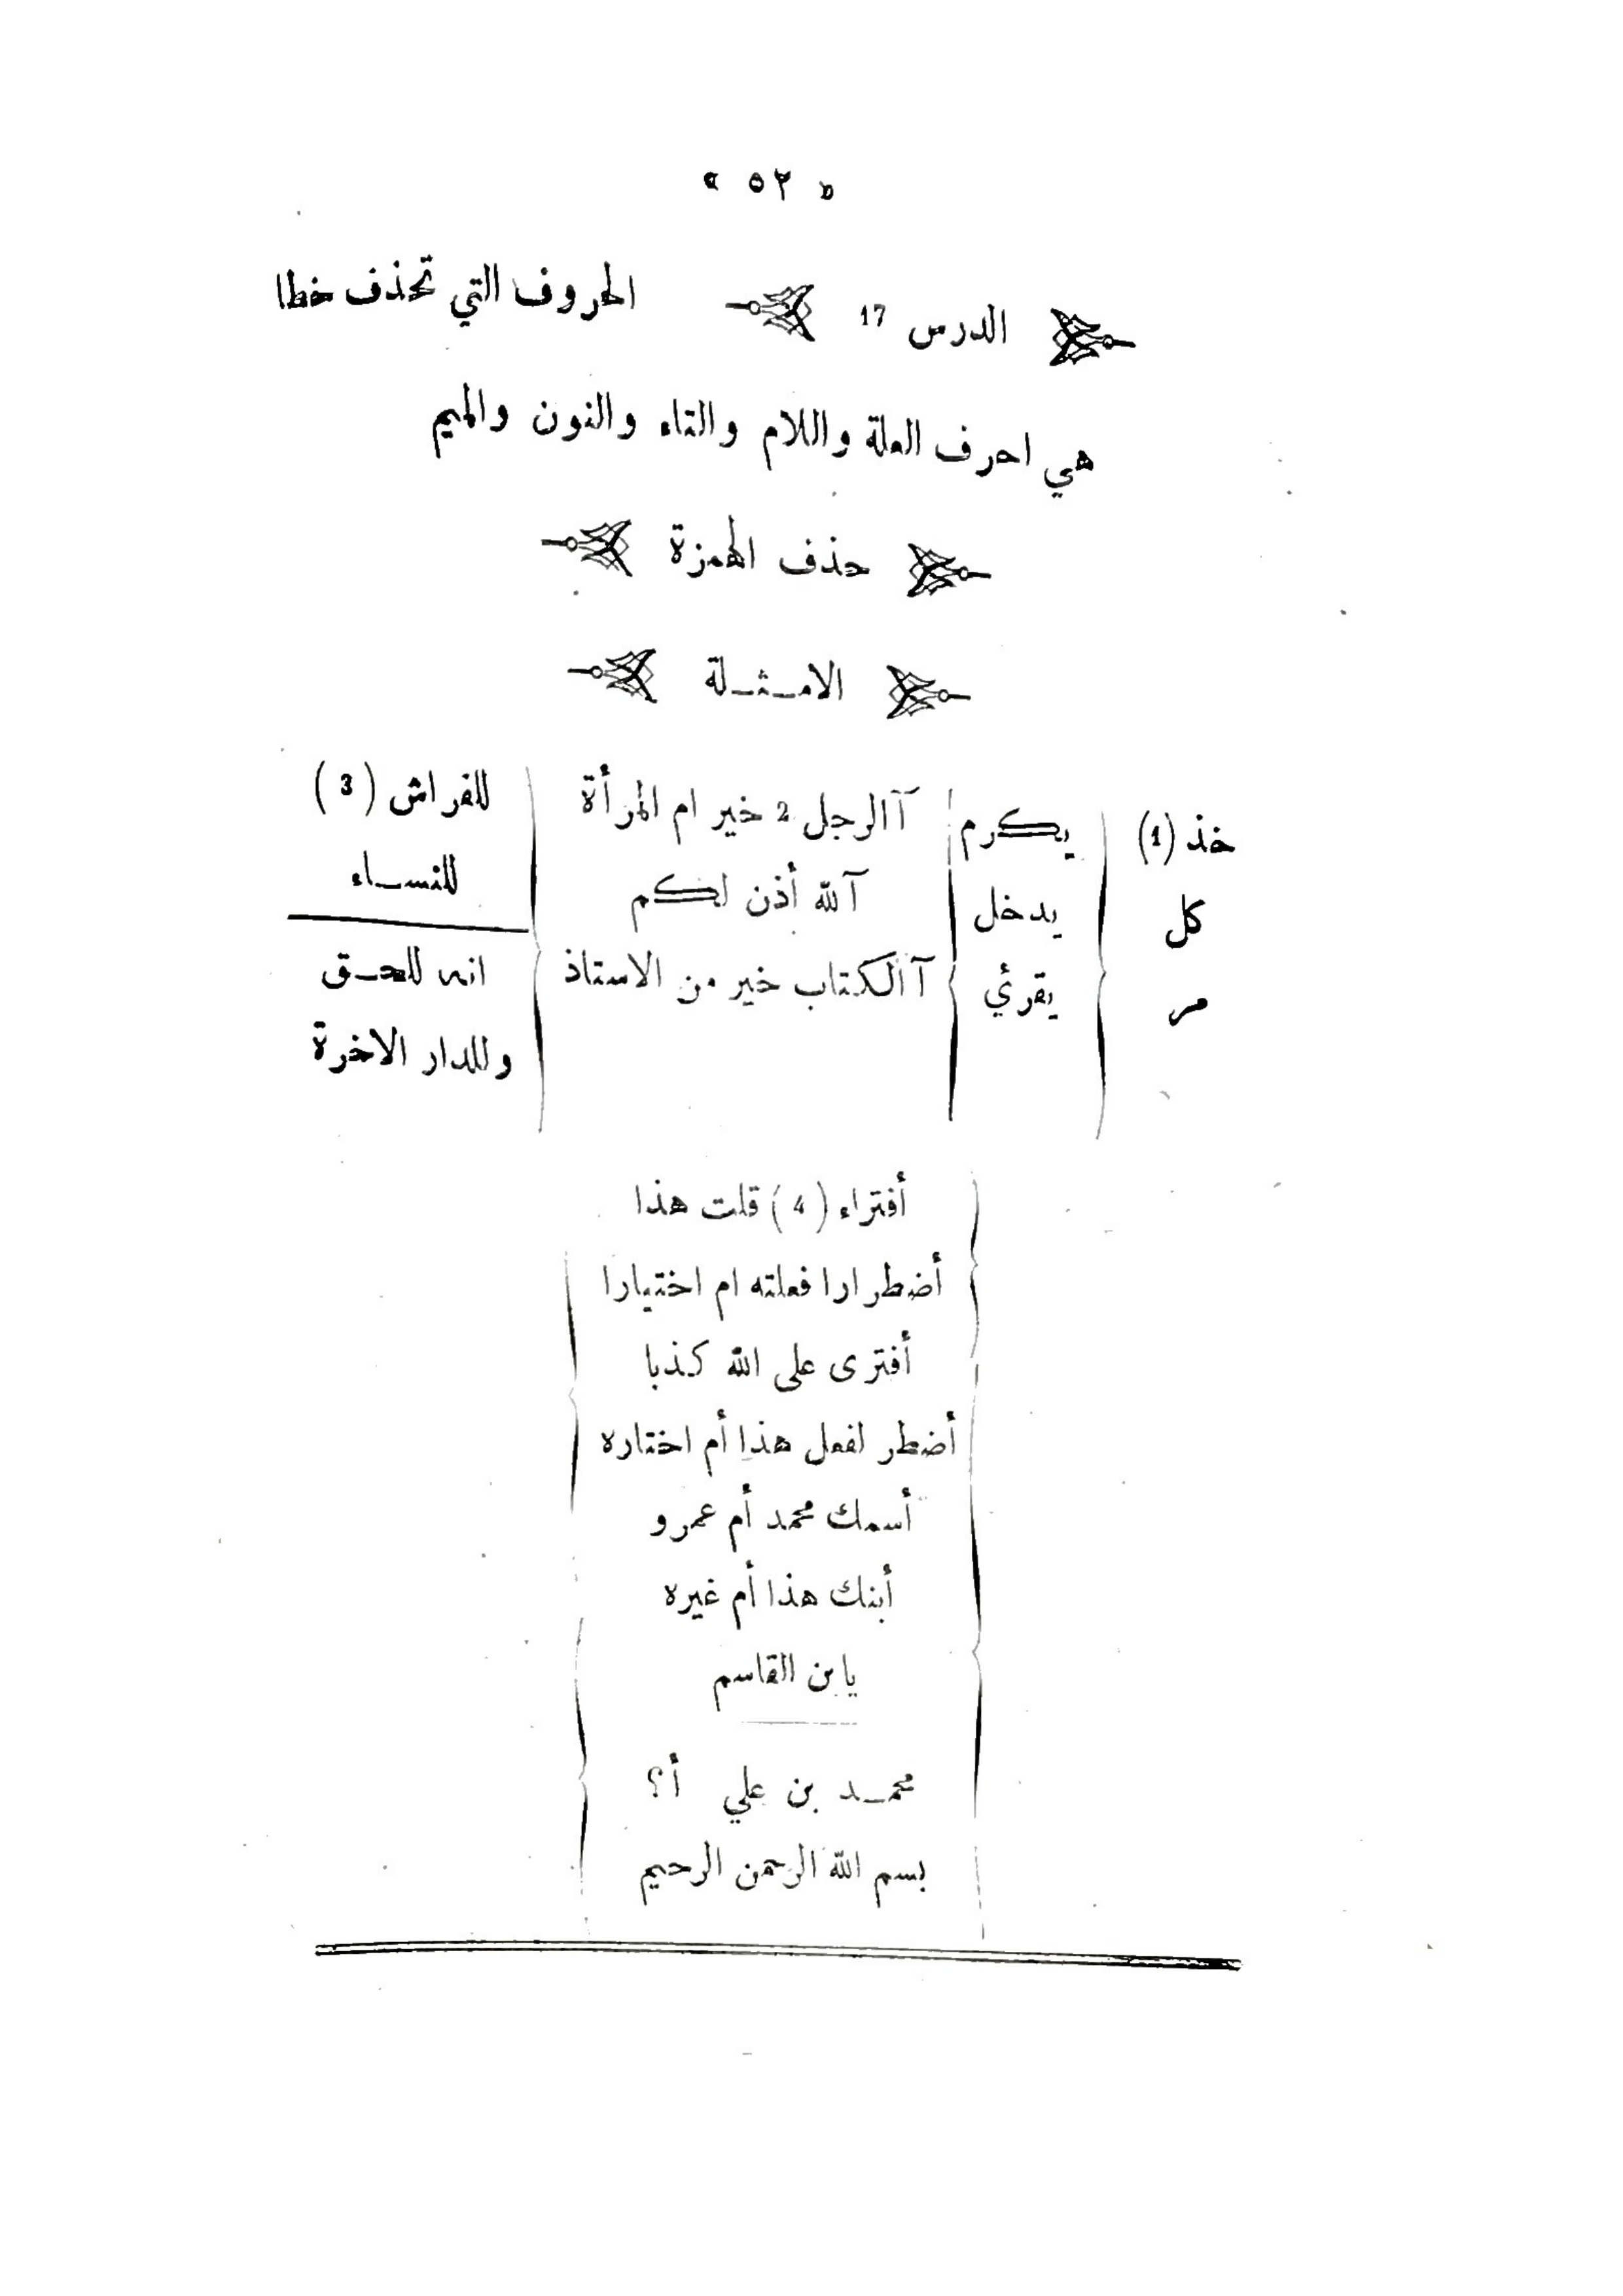 « ٥٢ »
الدرس 17 الحروف التي تحذف خطا
هي احرف العلة واللام والتاء والنون والميم
حذف الهمزة
الامـثـلة
خذ (1)
كل
مر
يكرم
يدخل
يقرئي
آالرجل 2 خير ام المرأة
آلله أذن لكم
آالكتاب خير من الاستاذ
للفراش (3)
للنسـاء
انه للحـق
وللدار الاخرة
أفتراء (4) قلت هذا
أضطرارا فعلته ام اختيارا
أفترى على الله كذبا
أضطر لفعل هذا أم اختاره
أسمك محمد أم عمرو
أبنك هذا أم غيره
يابن القاسم
محمـد بن علي أ؟
بسم الله الرحمن الرحيم